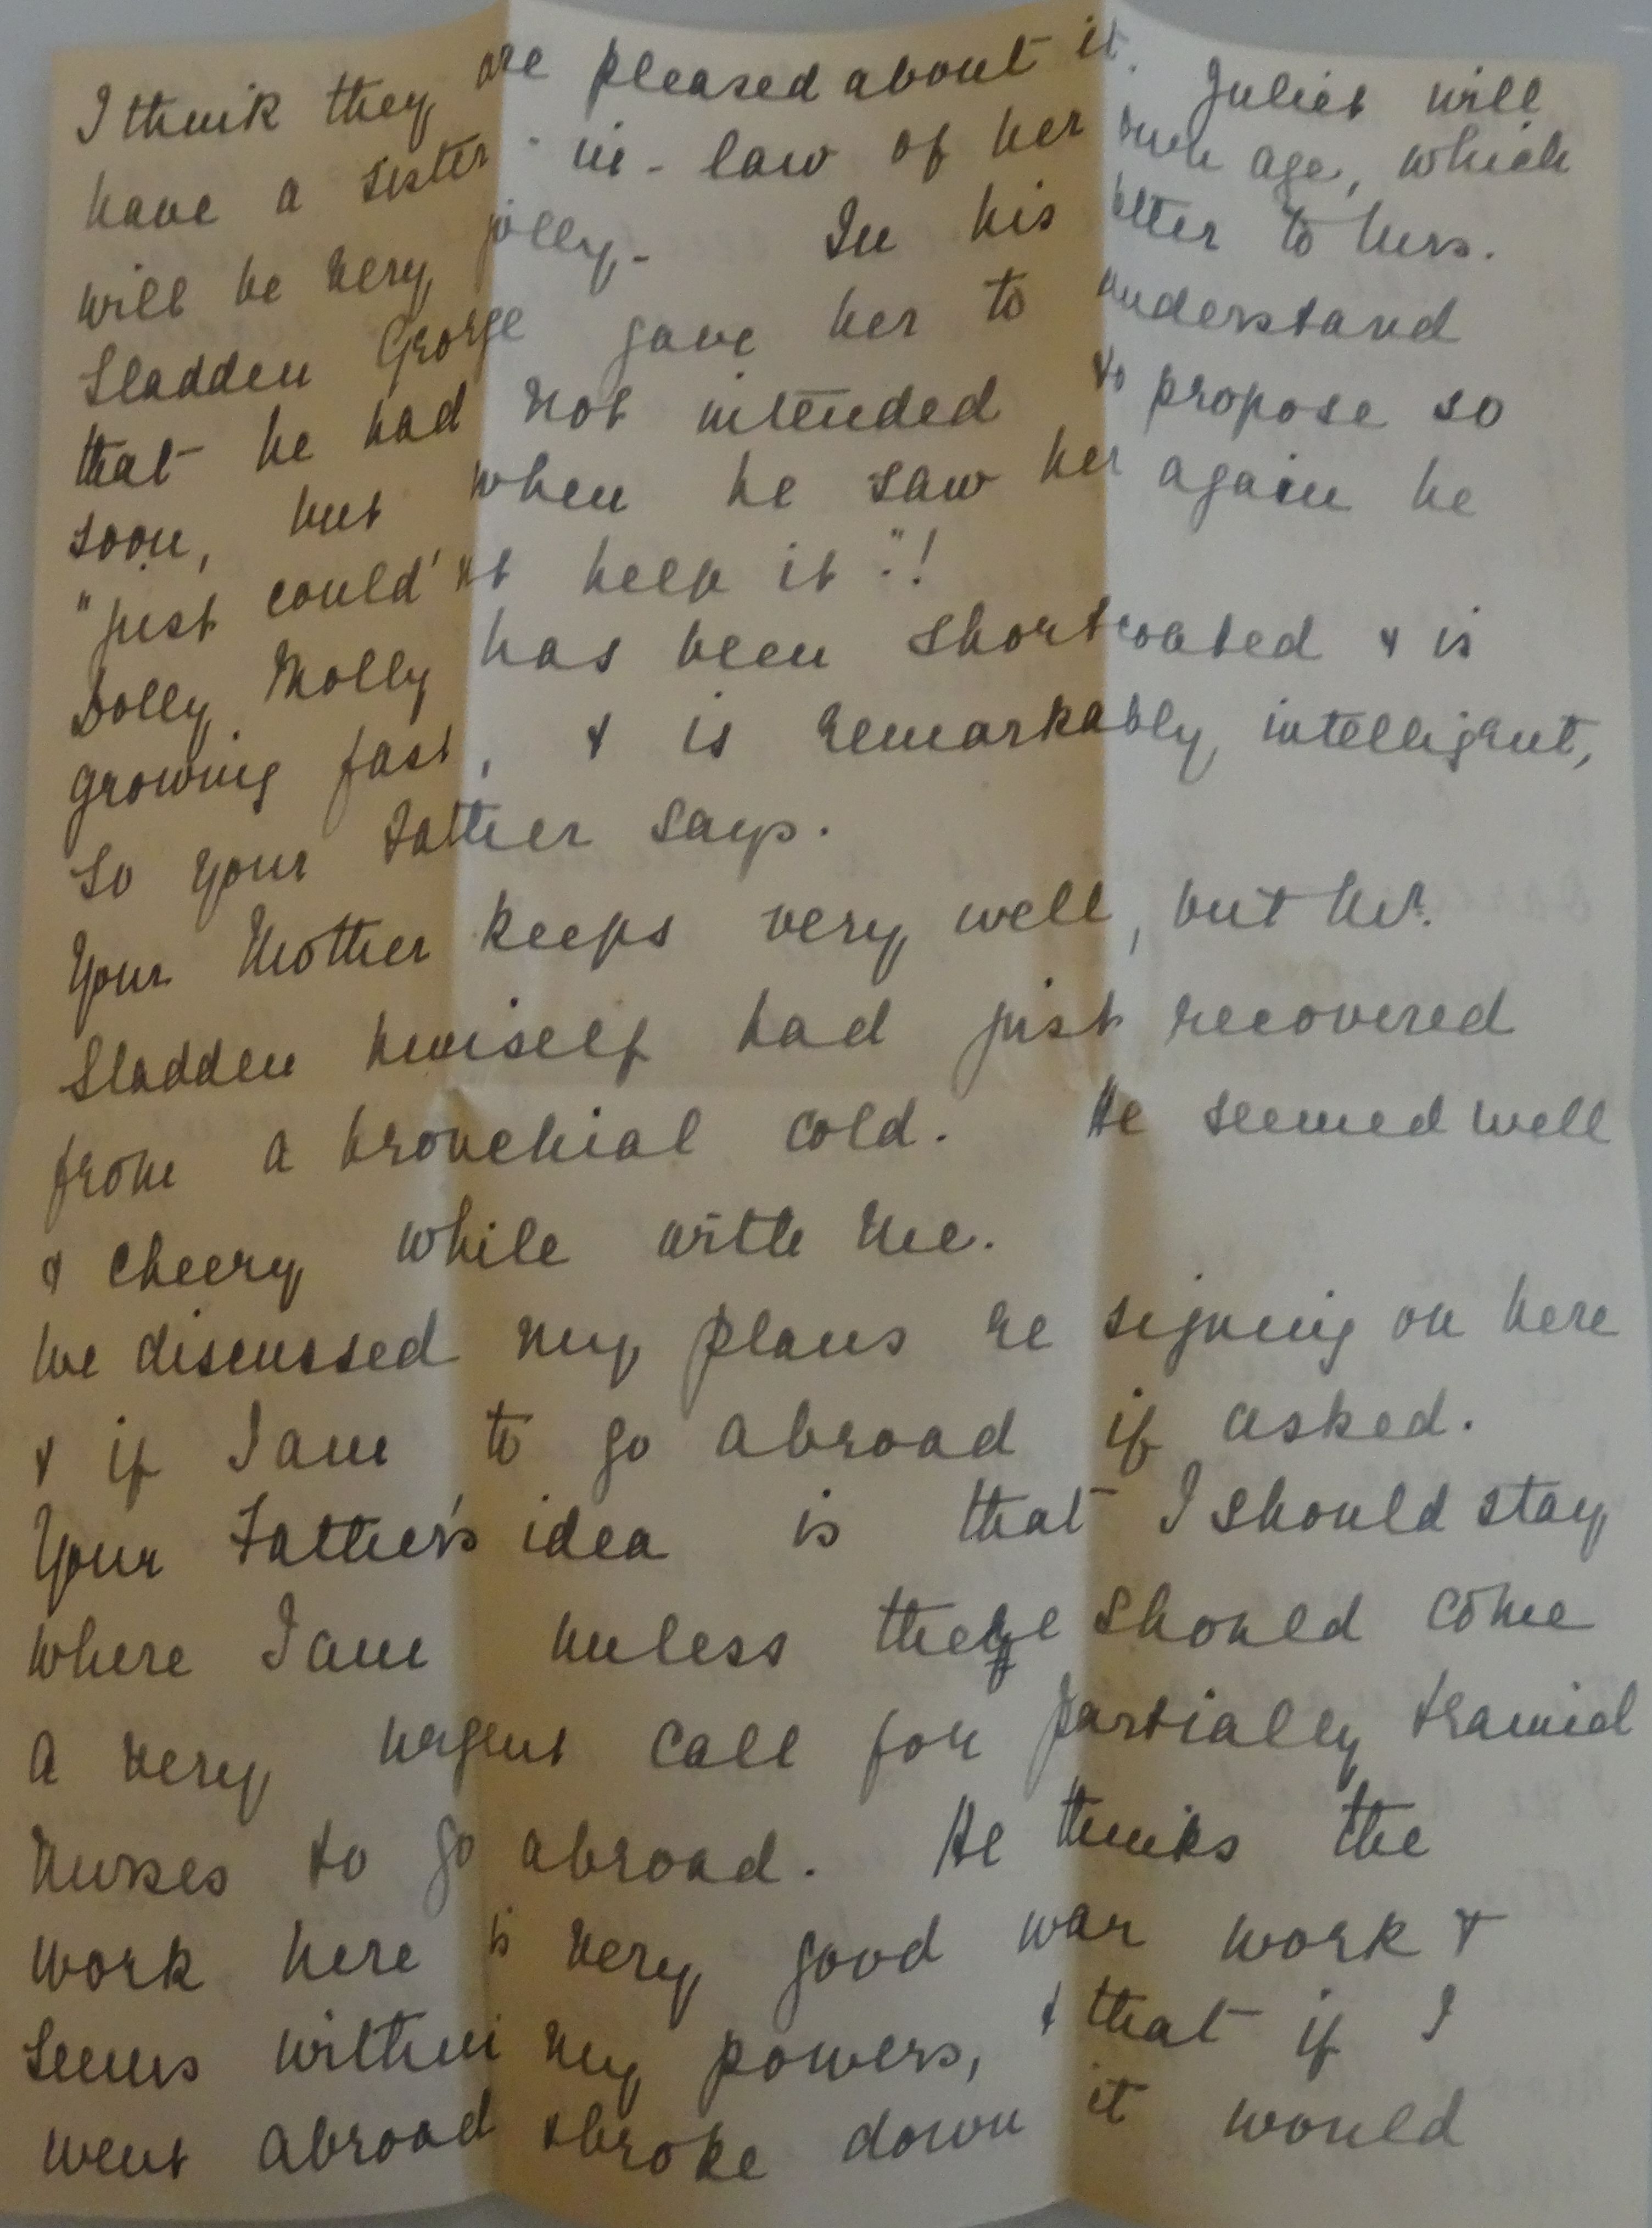 I think they are pleased about it. Juliet will
have a sister-in-law of her own age, which
will be very jolly. In his letter to Mrs.
Sladden George gave her to understand
that he had not intended to propose so
soon, but when he saw her again he
"just could'nt help it"!
Dolly Molly has been shortcoated & is
growing fast, & is remarkably intelligent,
so your Father says.
Your Mother keeps very well, but Mr.
Sladden himself had just recovered
from a bronchial cold. He seemed well
& cheery while with me.
We discussed my plans re signing on here
& if I am to go abroad if asked.
Your Father's idea is that I should stay
where I am unless there should come
a very urgent call for partially trained
nurses to go abroad. He thinks the
work here is very good war work &
seems within my powers, & that if I
went abroad & broke down it would